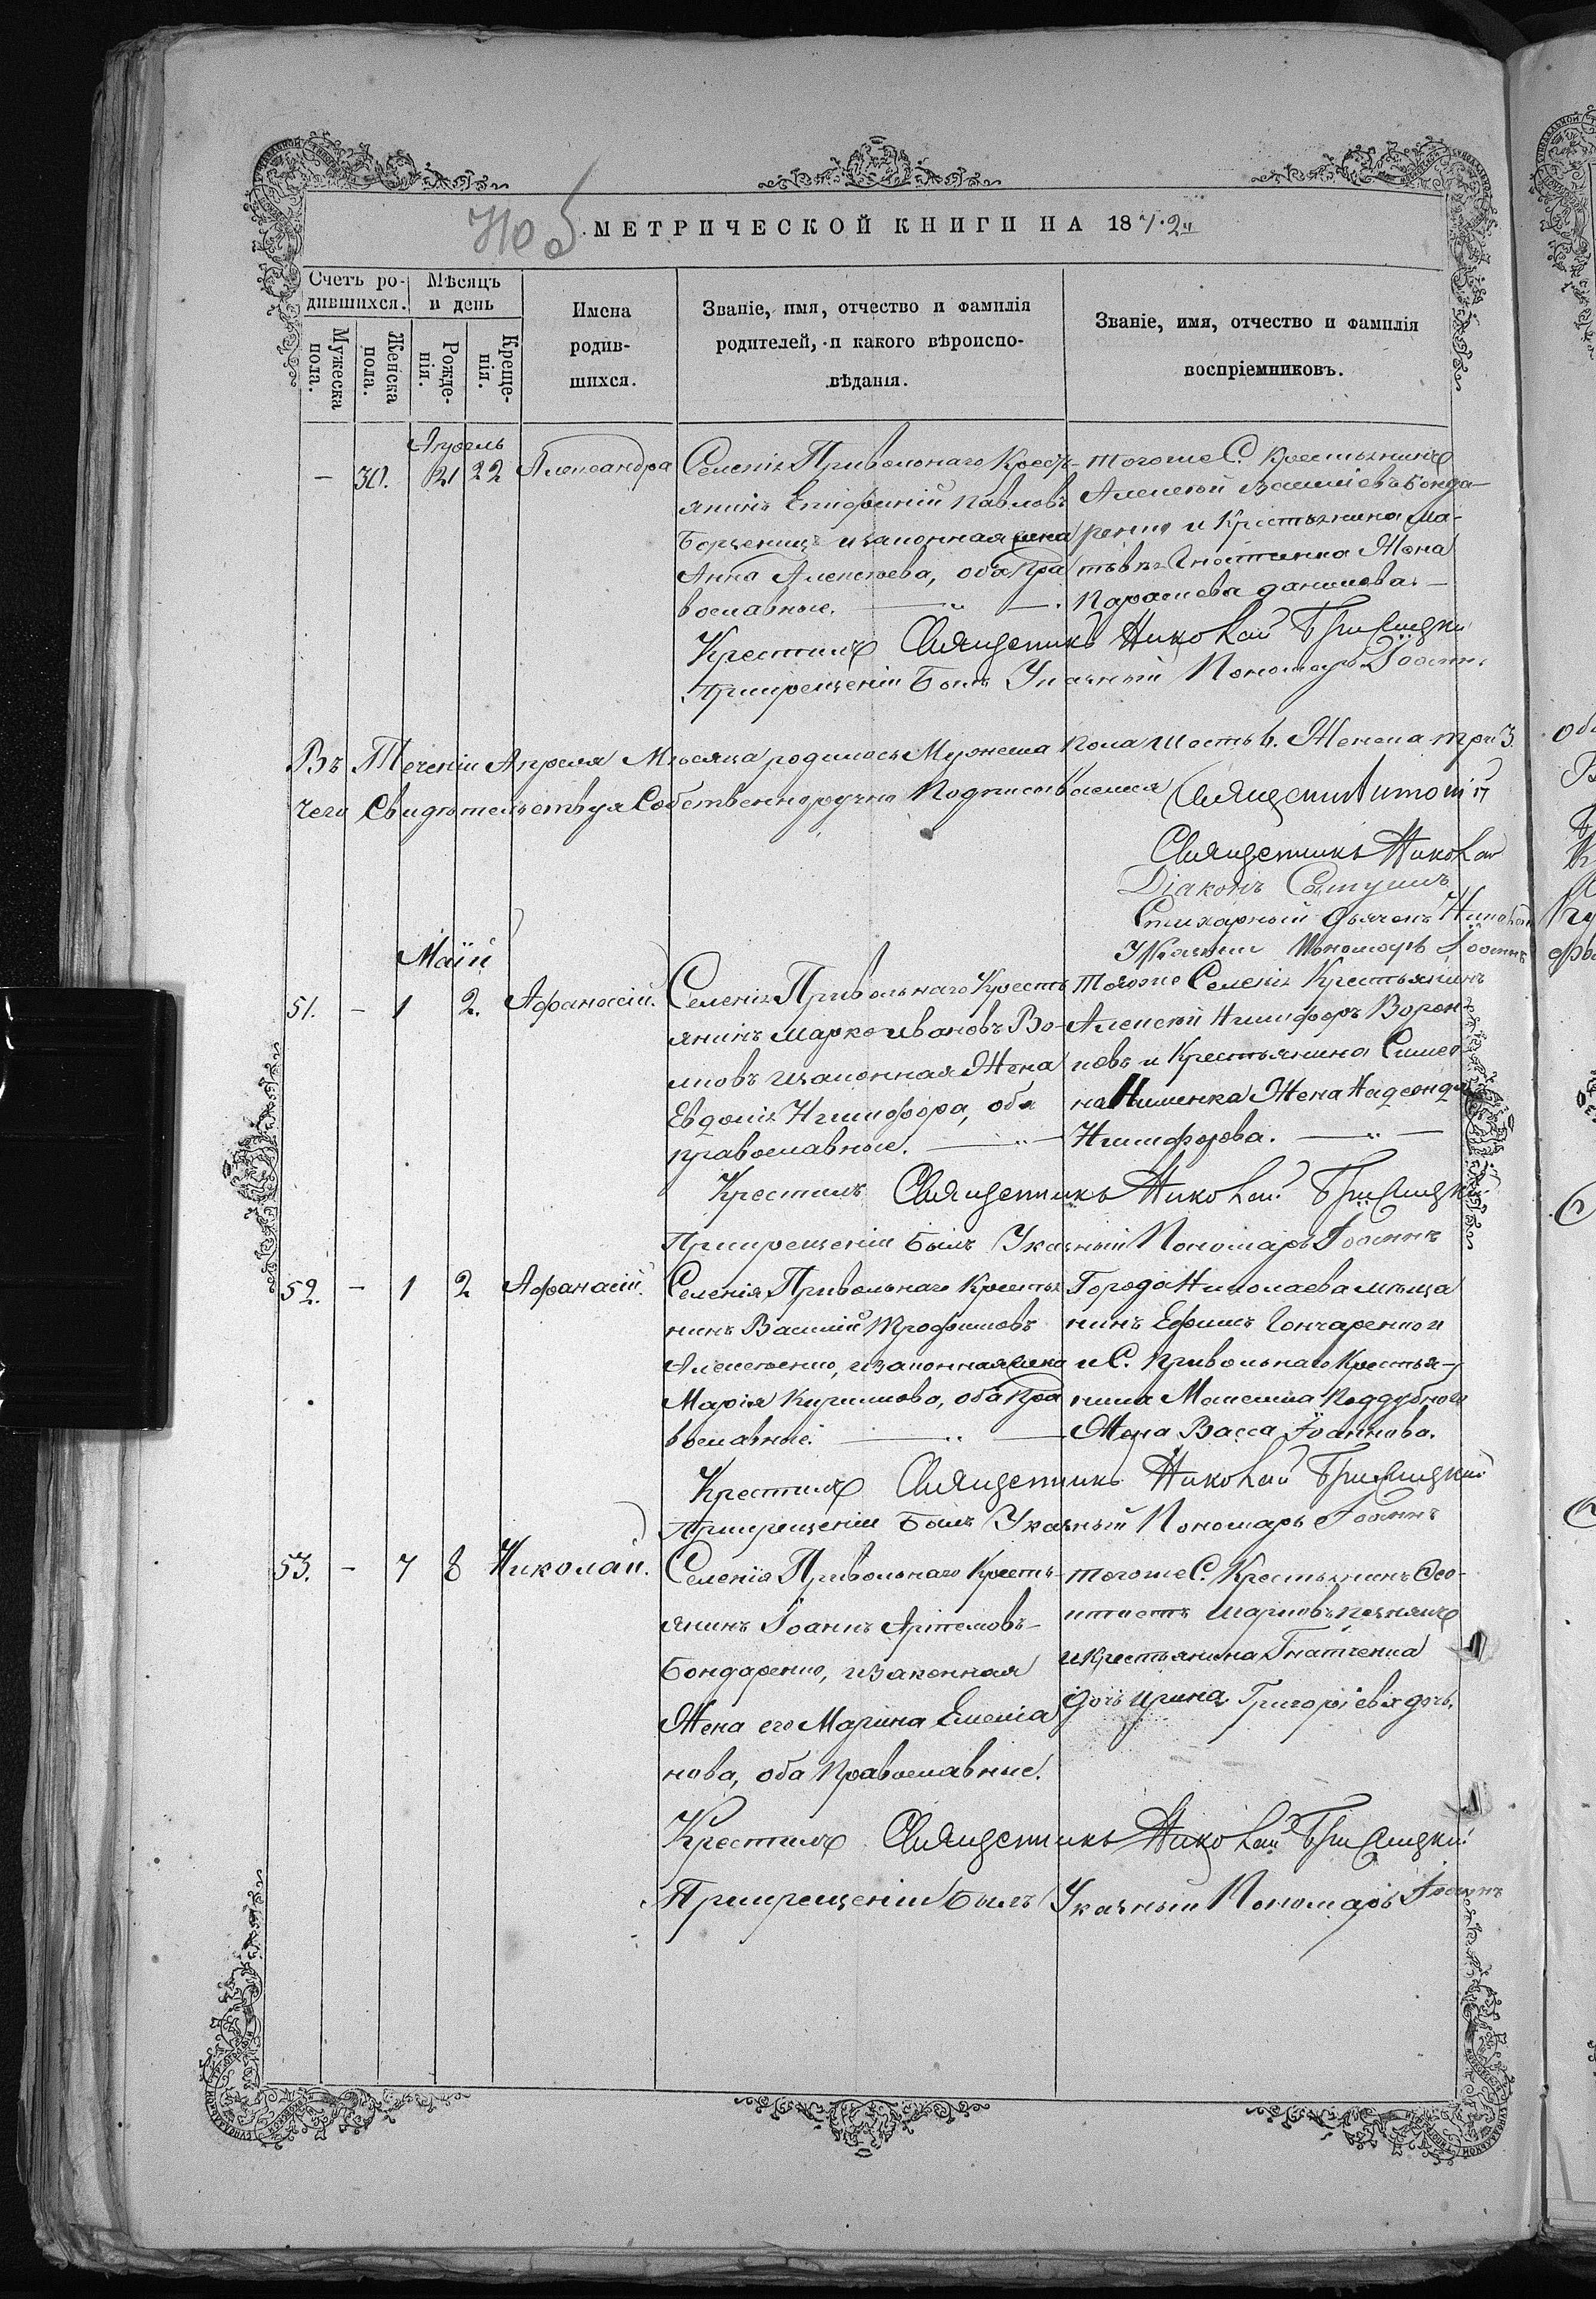 МЕТРИЧЕСКОЙ КНИГИ НА 1872й
Счетъ ро-
дившихся.
Мѣсяцъ
и день
Мужеска
пола.
Женска
пола.
Рожде-
нія.
Креще-
нія.
Имена
родив-
шихся.
Званіе, имя, отчество и фамилія
родителей, и какого вѣроиспо-
вѣданія.
Званіе, имя, отчество и фамилія
воспріемниковъ.
Апрель
— 30. 21 22 Александра
Селенія Привольнаго Крестъ-
янинъ Епифаній Павловъ
и законная жена
Анна Алексѣева, оба Пра
вославные.
Тогоже С. Крестьянинъ
Алексей Василіевъ Бонда-
ренко и Крестьянина Ма-
Жена
Параскева Данилова
Крестилъ Священникъ Николай
При крещеніи Былъ Указный Пономарь Іоаннъ
Въ Теченіи Апреля Месяца родилось Мужеска Пола шесть 6. Женска три 3.
чего Свидѣтельствуя Собственноручно Подписываемся
Священникъ Николай
Діаконъ
Стихарный Дьячекъ Николай
Указный Пономарь Іоаннъ
Маій
51. — 1 2. Афанасій.
Селенія Привольнаго Кресть
янинъ Марко Ивановъ Во-
ловъ и законная Жена
Евдокія Никифора, оба
православные.
Тогоже Селенія Крестьянинъ
Алексей Никифоръ Ворон-
ковъ и Крестьянина Симео
на Жена Надежда
Никифорова.
Крестилъ Священникъ Николай
При крещеніи былъ Указный Пономарь Іоаннъ
52. — 1 2 Афанасій.
Селенія Привольнаго Крестья
нинъ Василій Трофимовъ
Алексѣенко, и законная жена
Марія Кирилова, оба Пра
вославные.
Города Николаева мѣща
нинъ Ефимъ Гончаренко и
и С. Привольнаго Крестья-
нина Максима Поддубного
Жена Васса Іоаннова.
Крестилъ Священникъ Николай
При крещеніи Былъ Указный Пономарь Іоаннъ
53. — 7 8 Николай.
Селенія Привольнаго Кресть-
янинъ Іоаннъ Артемовъ-
Бондаренко, и законная
Жена его Марина Емелiа
нова, оба Православные.
Тогоже С. Крестьянинъ Фео-
ктистъ Марковъ
и крестьянина Гнатченка
дочь Ирина Григоріева дочь.
Крестилъ Священникъ Николай
При крещеніи Былъ Указный Пономарь Іоаннъ